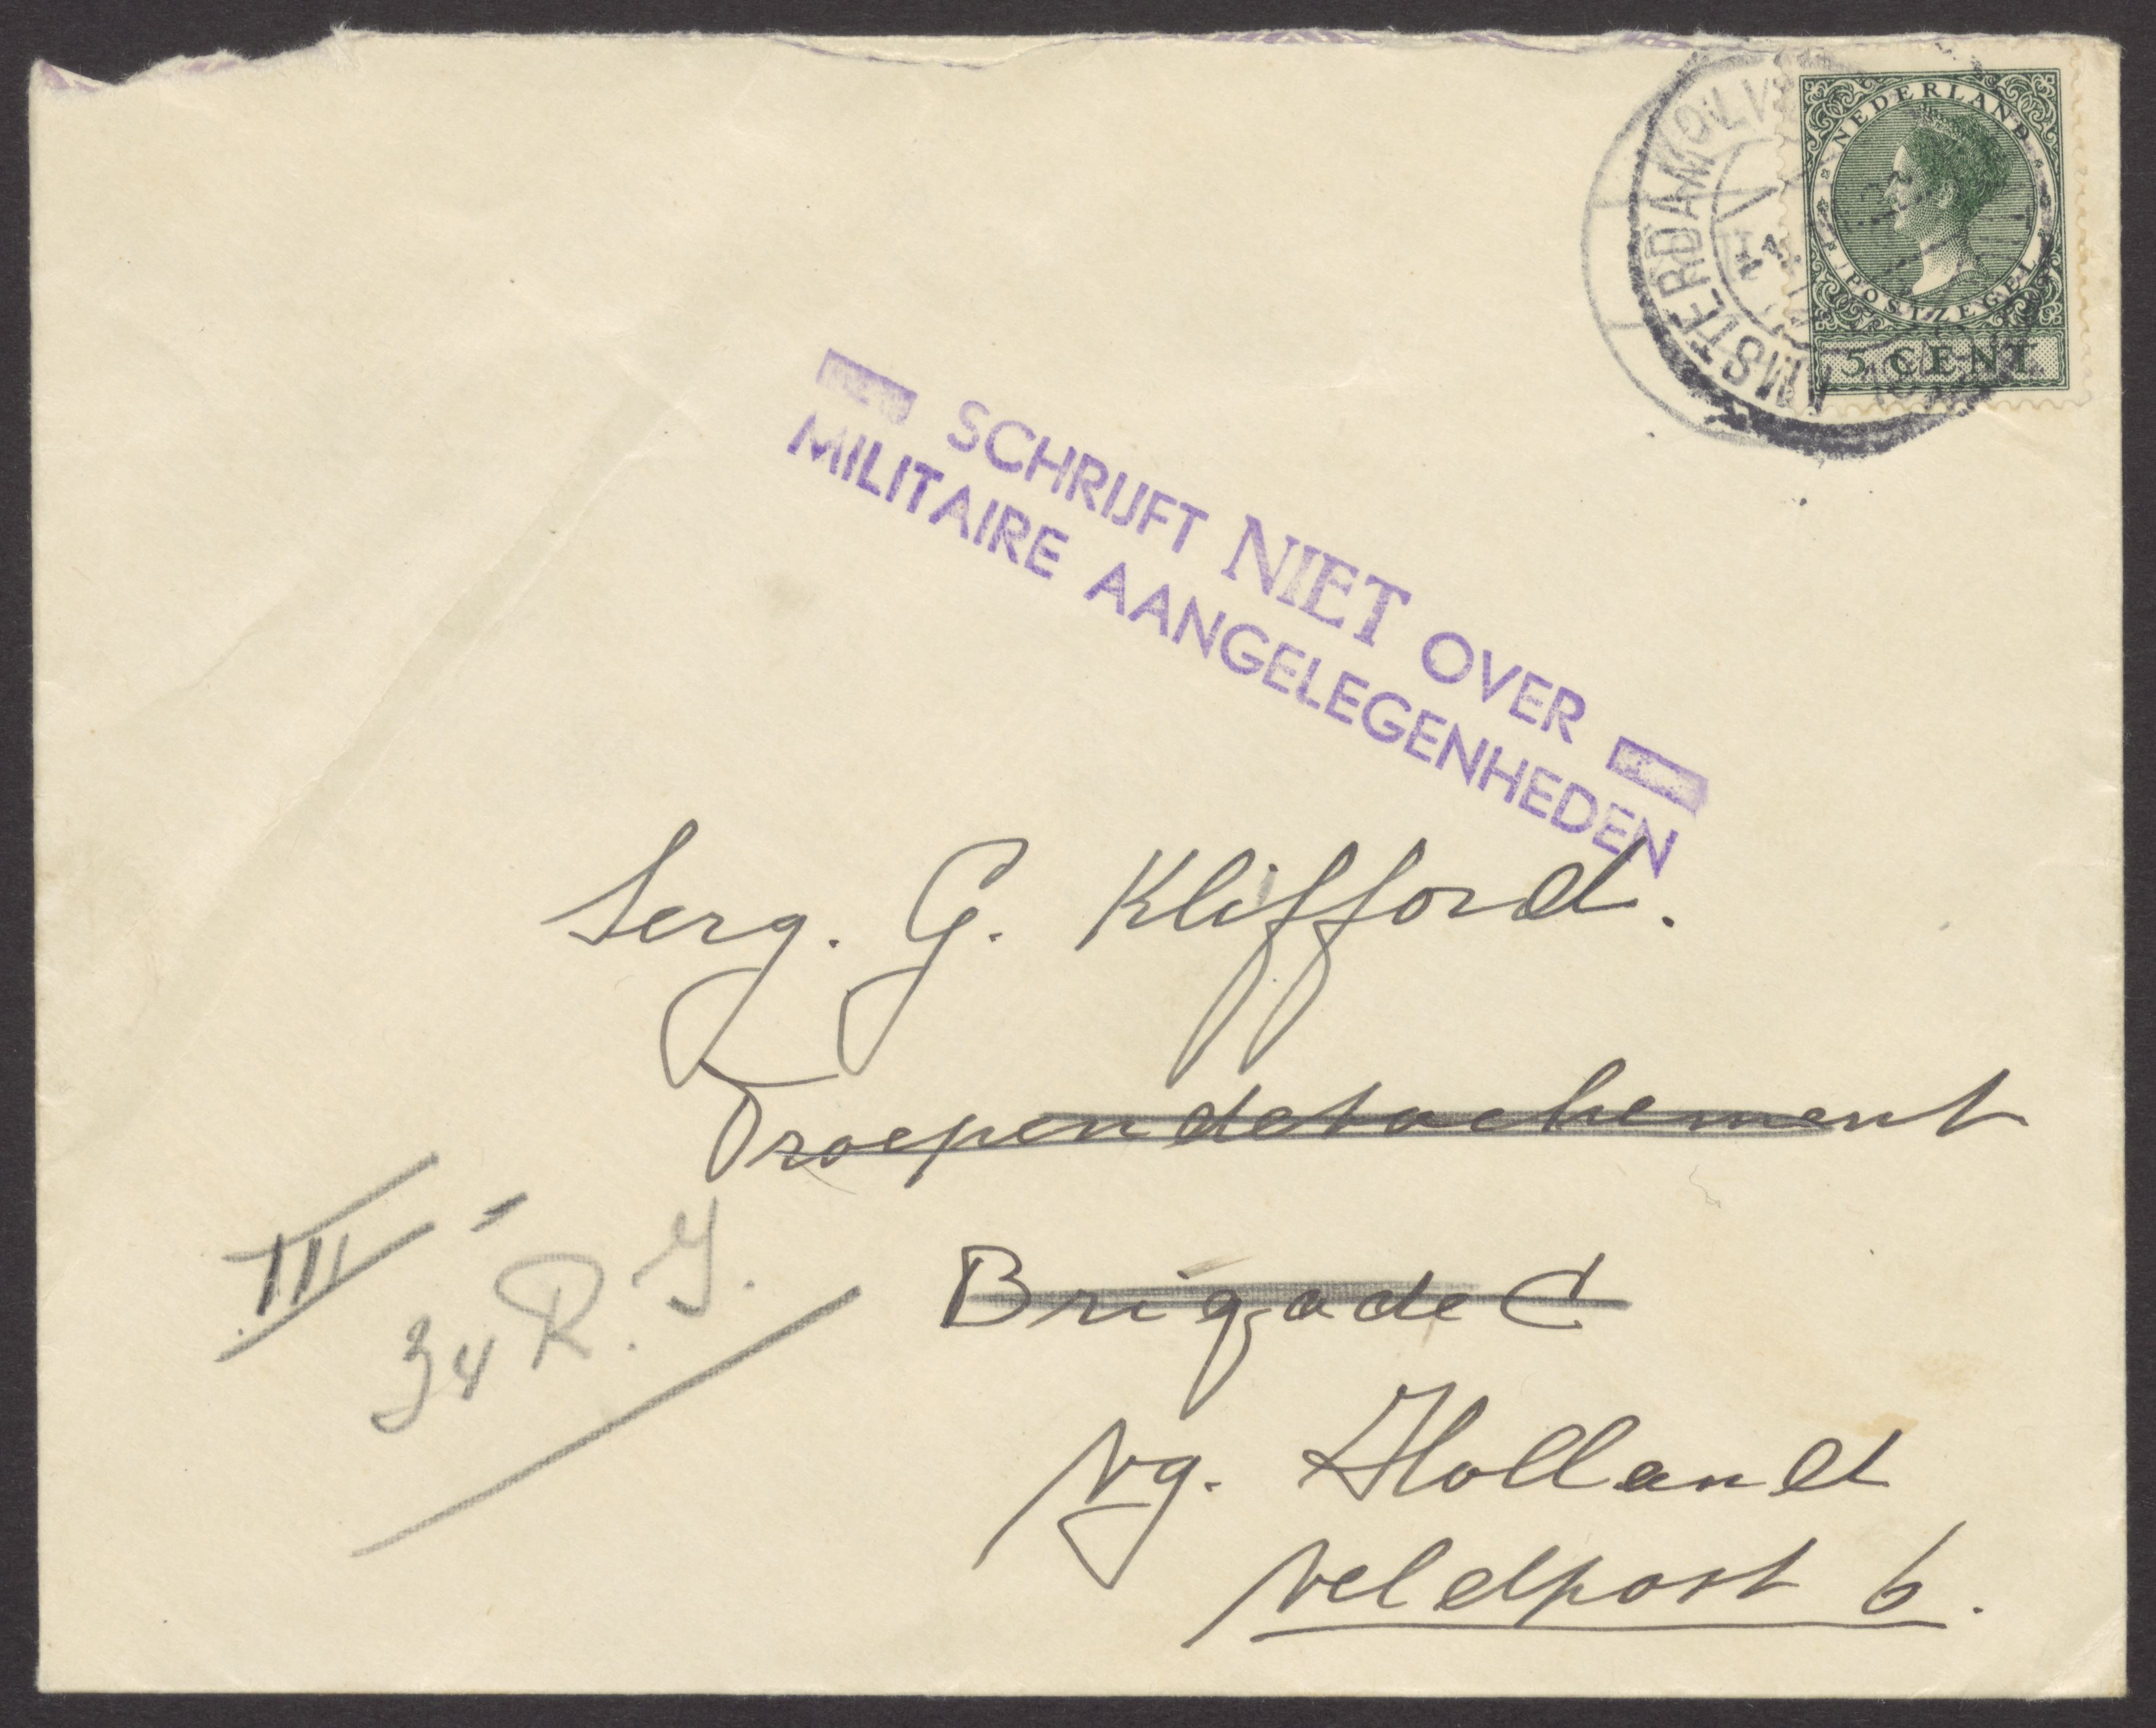 NEDERLAND
POSTZEGEL
5 CENT
AMSTERDAM
SCHRIJFT NIET OVER
MILITAIRE AANGELEGENHEDEN
Serg. G. Klifford.
Troependetachement
Brigade C
Vg. Holland
Veldpost 6.
III -
34 R.I.